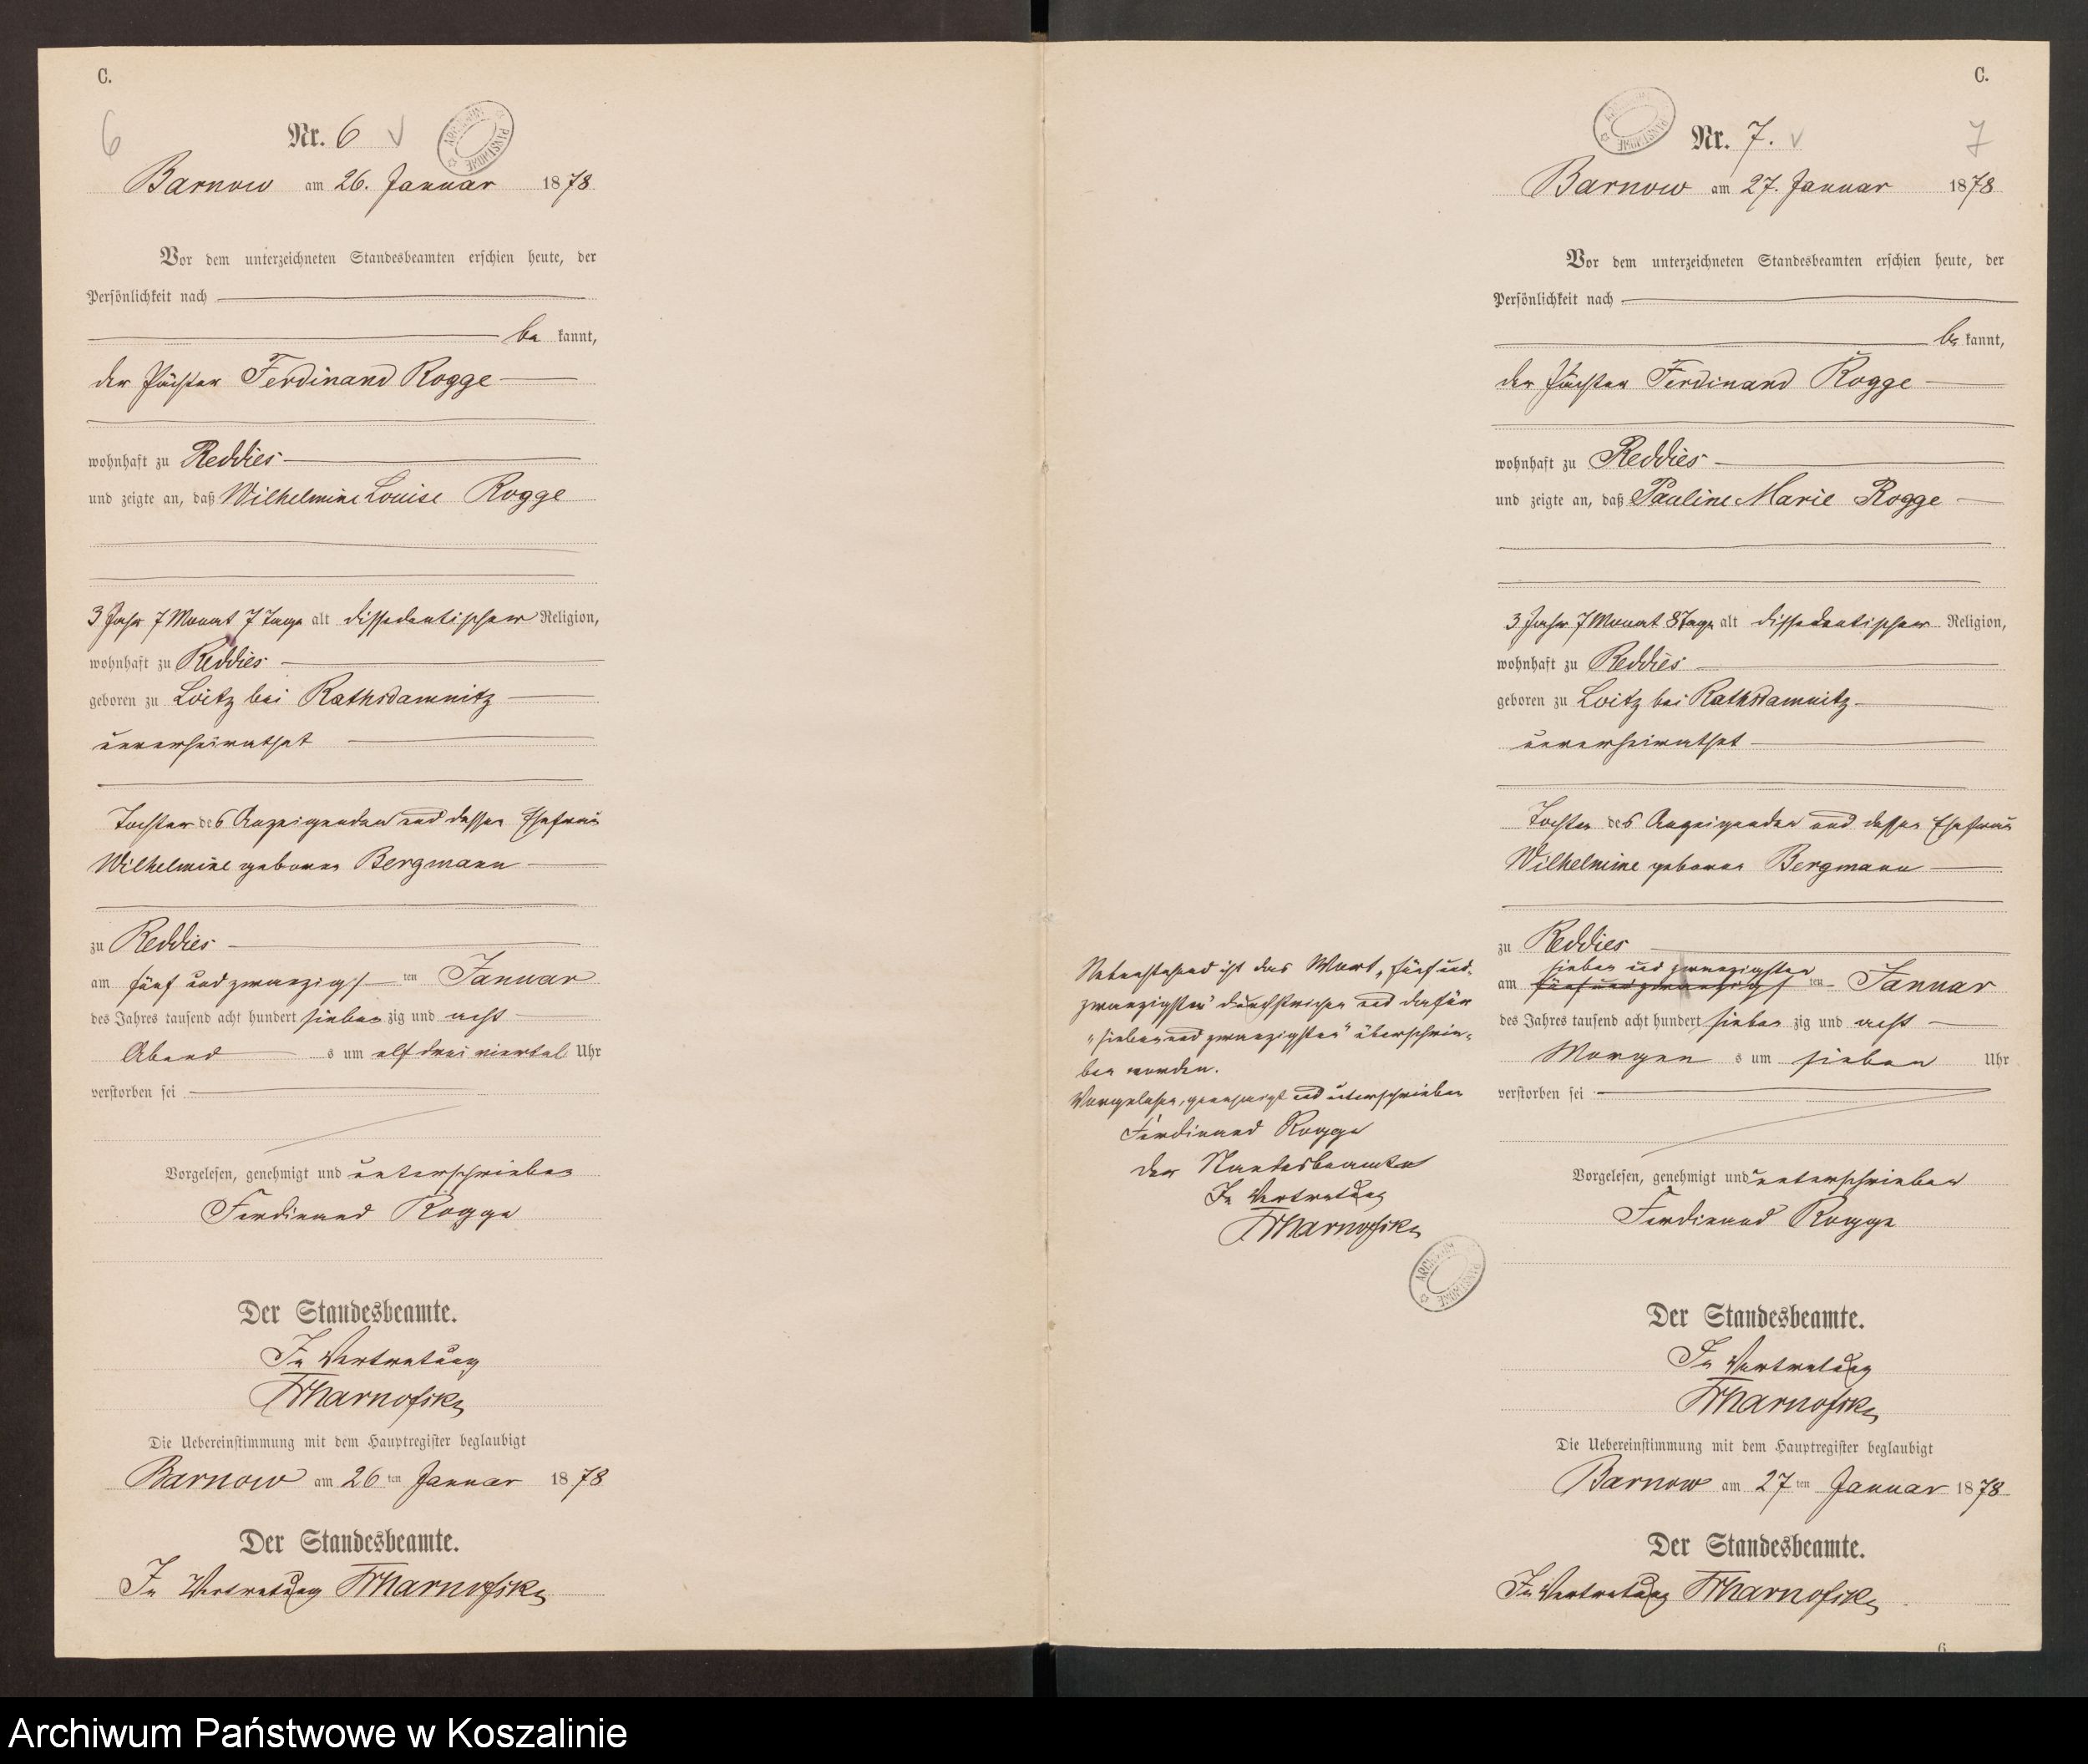 C.
6
Nr. 6
ARCHIWUM PAŃSTWOWE
Barnow am 26. Januar 1878
Vor dem unterzeichneten Standesbeamten erschien heute, der
Persönlichkeit nach
be kannt,
der Pächter Ferdinand Rogge
wohnhaft zu Reddies
und zeigte an, daß Wilhelmine Louise Rogge
3 Jahr 7 Monat 7 Tage alt dissedentischer Religion,
wohnhaft zu Reddies
geboren zu Loitz bei Rathsdamnitz
unverheirathet
Tochter des Anzeigenden und dessen Ehefrau
Wilhelmine geborne Bergmann
zu Reddies
am fünf und zwanzigs ten Januar
des Jahres tausend acht hundert sieben zig und acht
Abend s um elf drei viertel Uhr
verstorben sei
Vorgelesen, genehmigt und unterschrieben
Ferdinand Rogge
Der Standesbeamte.
In Vertretung
Die Uebereinstimmung mit dem Hauptregister beglaubigt
Barnow am 26 ten Januar 1878
Der Standesbeamte.
In Vertretung
C.
7
Nr. 7.
ARCHIWUM PAŃSTWOWE
Barnow am 27. Januar 1878
Vor dem unterzeichneten Standesbeamten erschien heute, der
Persönlichkeit nach
be kannt,
der Pächter Ferdinand Rogge
wohnhaft zu Reddies
und zeigte an, daß Pauline Marie Rogge
3 Jahr 7 Monat 8 Tage alt dissedentischer Religion,
wohnhaft zu Reddies
geboren zu Loitz bei Rathsdamnitz
unverheirathet
Tochter des Anzeigenden und dessen Ehefrau
Wilhelmine geborne Bergmann
zu Reddies
sieben und zwanzigsten
am fünf und zwanzigs ten Januar
des Jahres tausend acht hundert sieben zig und acht
Morgen s um sieben Uhr
verstorben sei
Vorgelesen, genehmigt und unterschrieben
Ferdinand Rogge
Der Standesbeamte.
In Vertretung
Die Uebereinstimmung mit dem Hauptregister beglaubigt
Barnow am 27 ten Januar 1878
Der Standesbeamte.
In Vertretung
6
Nebenstehend ist das Wort „fünf und
zwanzigsten" durchstrichen und dafür
„sieben und zwanzigsten" überschrie-
ben worden.
Vorgelesen, genehmigt und unterschrieben
Ferdinand Rogge
Der Standesbeamte
In Vertretung
ARCHIWUM PAŃSTWOWE
Archiwum Państwowe w Koszalinie